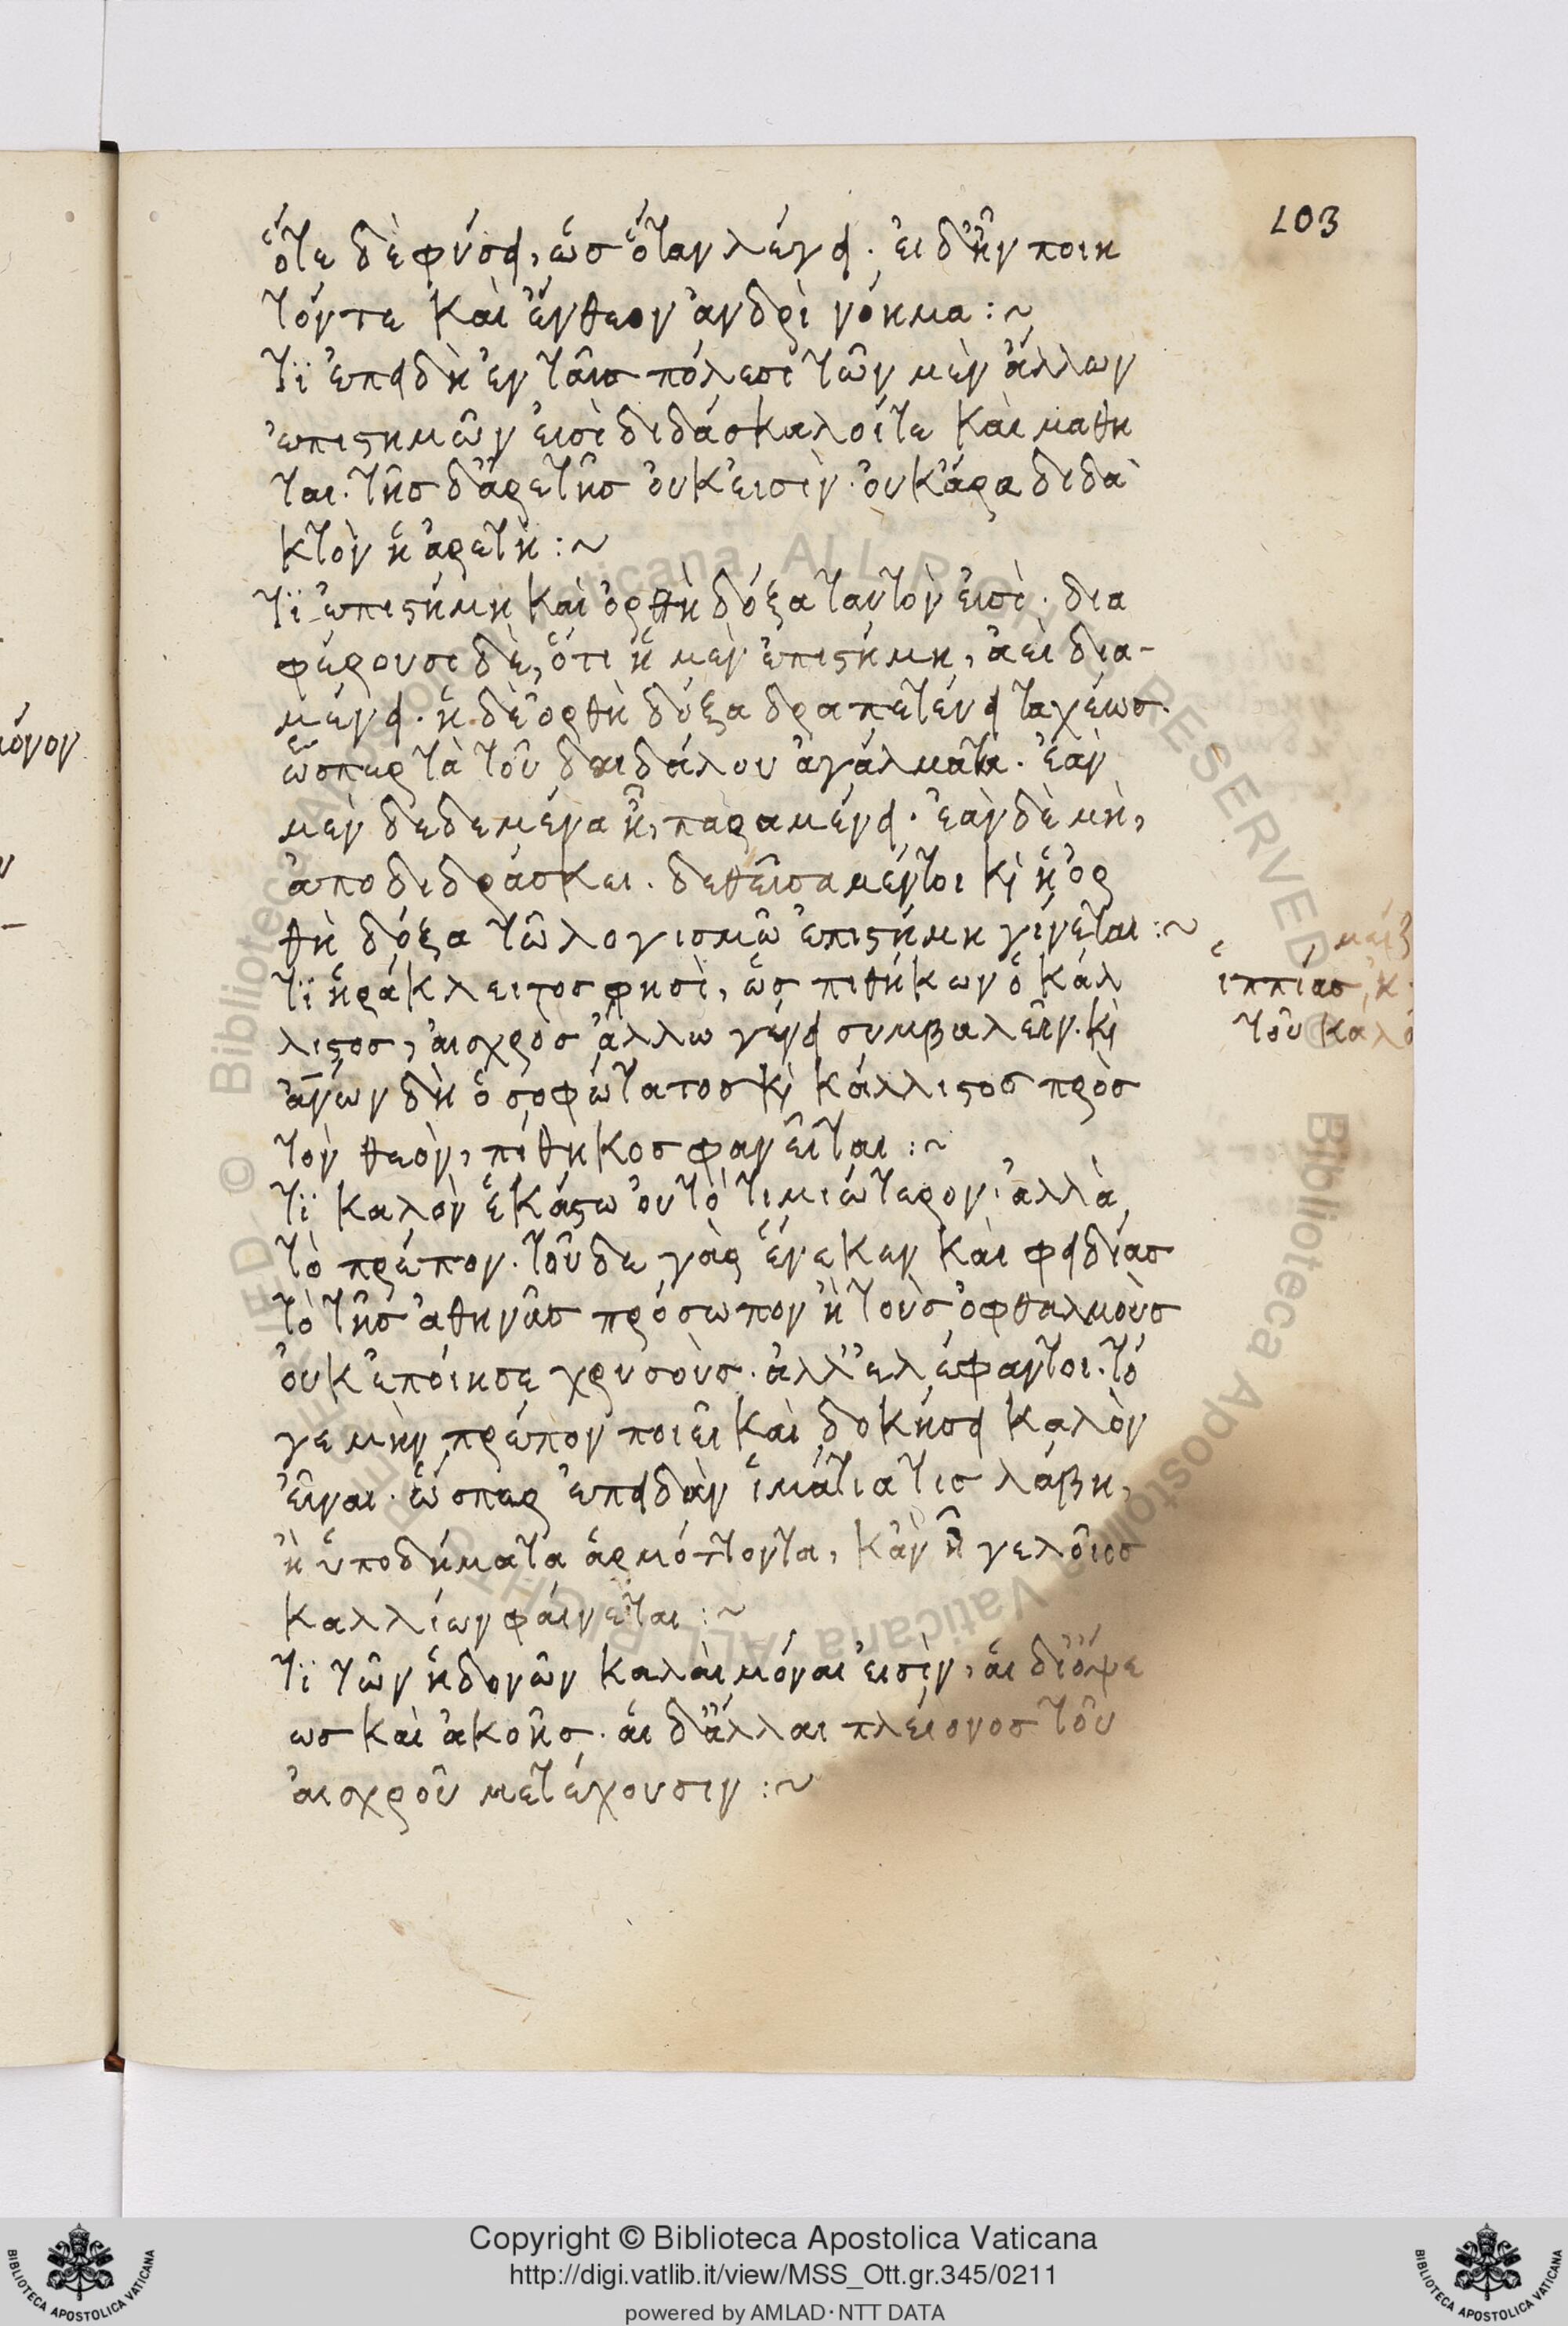 103
ὅτε δὲ φύσει, ὡς ὅταν λέγει. εἰ δ' ἦν ποιη
τόν τε καὶ ἔνθεον ἀνδρὶ νόημα :~
Τί ἐπειδὴ ἐν ταῖς πόλεσι τῶν μὲν ἄλλων
ἐπιστημῶν εἰσὶ διδάσκαλοί τε καὶ μαθη
ταὶ. τῆς δ' ἀρετῆς οὐκ εἰσὶν. οὐκ ἄρα διδα
κτὸν ἡ ἀρετή :~
Τί ἐπιστήμη καὶ ὀρθὴ δόξα ταυτόν εἰσὶ. δια
φέρουσι δὲ, ὅτι ἡ μὲν ἐπιστήμη, ἀεὶ δια-
μένει. ἡ δὲ ὀρθὴ δόξα δραπετεύει ταχέως.
ὥσπερ τὰ τοῦ δαιδάλου ἀγάλματα. ἐὰν
μὲν δεδεμένα ᾖ, παραμένει. ἐὰν δὲ μὴ,
ἀποδιδράσκει. δεθεῖσα μέντοι κὶ ἡ ὀρ
θὴ δόξα τῶ λογισμῶ ἐπιστήμη γίνεται :~
Τί ἡράκλειτος φησὶ, ὡς πιθήκων ὁ κάλ
λιστος, αἰσχρὸς ἄλλω γένει συμβαλεῖν. κὶ
ἀνων δὴ ὁ σοφώτατος κὶ κάλλιστος πρὸς
τὸν θεὸν, πίθηκος φανεῖται :~
Τί καλὸν ἑκάστω οὐ τὸ τιμιώτερον. ἀλλὰ
τὸ πρέπον. τοῦδε γὰρ ἕνεκεν καὶ φειδίας
τὸ τῆς ἀθηνᾶς πρόσωπον ἢ τοὺς ὀφθαλμοὺς
οὐκ ἐποίησε χρυσοὺς. ἀλλ' ἐλέφαντοι. τό
γε μὴν πρέπον ποιεῖ καὶ δοκήσει καλὸν
εἶναι. ὥσπερ ἐπειδὰν ἱμάτια τις λάβη,
ἢ ὑποδήματα ἁρμόττοντα, κἂν ᾖ γελοῖος
καλλίων φαίνεται :~
Τί τῶν ἡδονῶν καλαὶ μόναι εἰσὶν, αἱ δι' ὄψε
ως καὶ ἀκοῆς. αἱ δ' ἄλλαι πλείονος τοῦ
αἰσχροῦ μετέχουσιν :~
ἱππίας, ἢ
τοῦ καλο
Copyright © Biblioteca Apostolica Vaticana
http://digi.vatlib.it/view/MSS_Ott.gr.345/0211
powered by AMLAD·NTT DATA